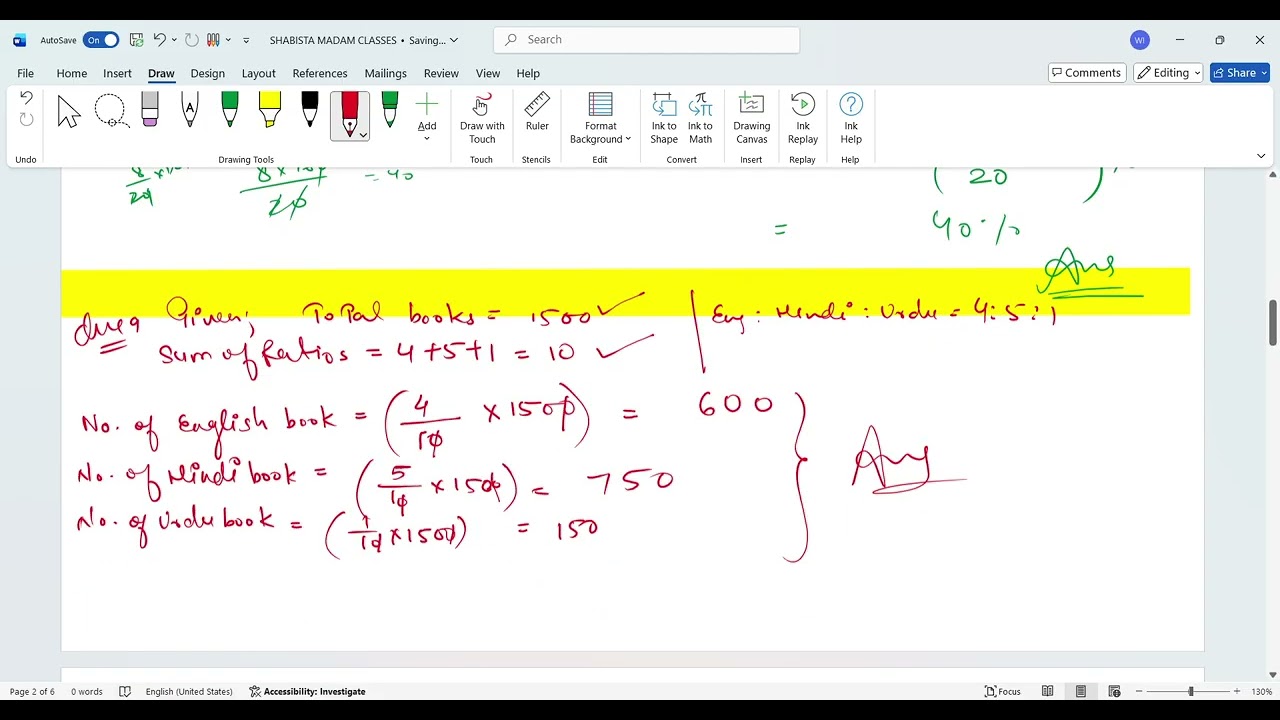 AutoSave On SHABISTA MADAM CLASSES • Saving... Search WI
File Home Insert Draw Design Layout References Mailings Review View Help Comments Editing Share
Add Draw with Touch Ruler Format Background Ink to Shape Ink to Math Drawing Canvas Ink Replay Ink Help
Undo Drawing Tools Touch Stencils Edit Convert Insert Replay Help
8/20 8 × 100/20 = 40 20
= 40%
Ans
Given; Total books = 1500 Eng : Hindi : Urdu = 4:5:1
Sum of Ratios = 4+5+1 = 10
No. of English book = (4/10 × 1500) = 600
No. of Hindi book = (5/10 × 1500) = 750
Ans
No. of Urdu book = (1/10 × 1500) = 150
Page 2 of 6 0 words English (United States) Accessibility: Investigate Focus 130%